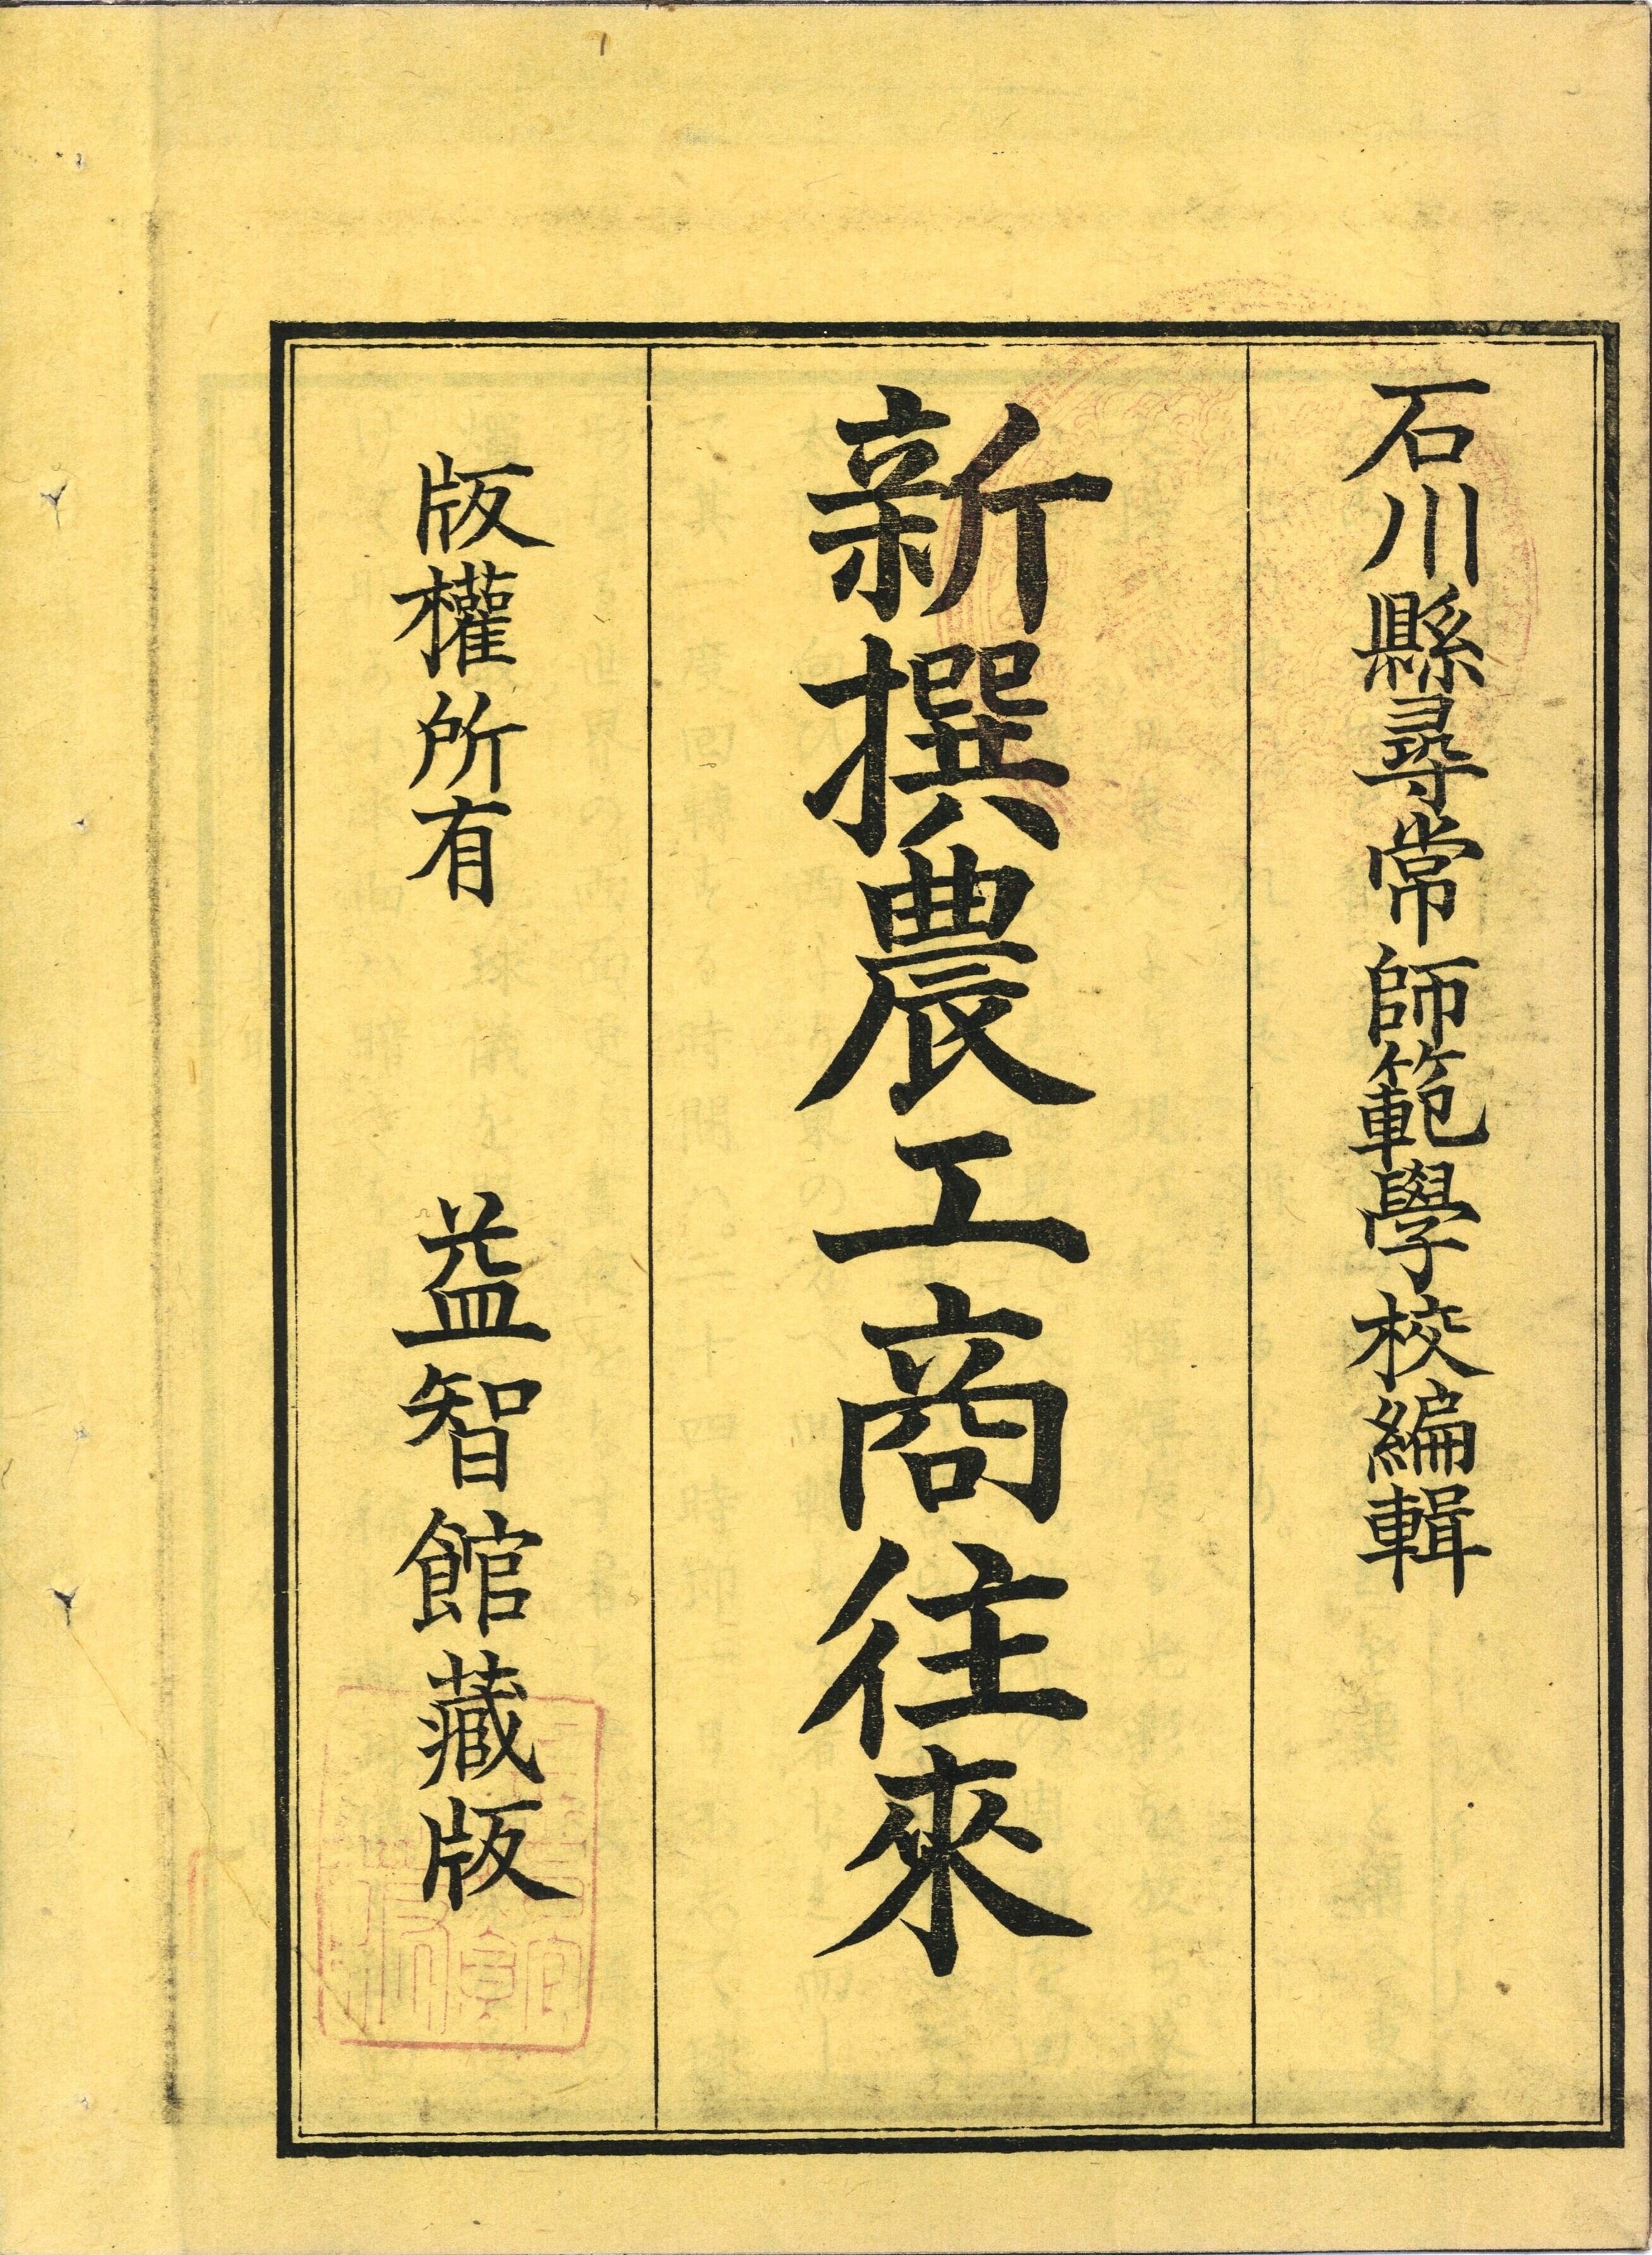 石川縣尋常師範學校編輯
新撰農工商往來
版權所有　益智館藏版